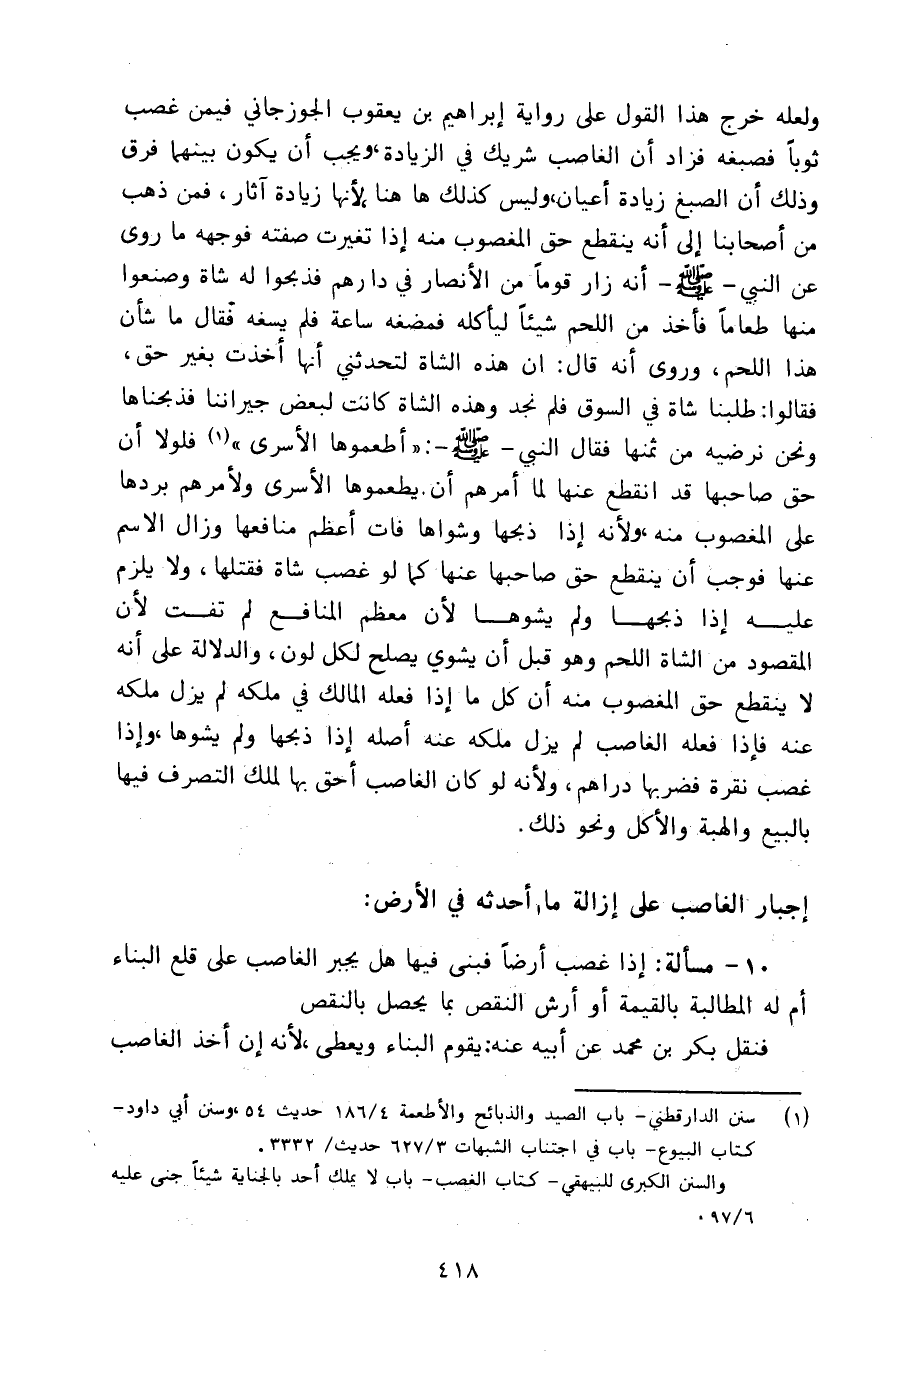 ولعله خرج هذا القول على رواية إبراهيم بن يعقوب الجوزجاني فيمن غصب
ثوباً فصبغه فزاد أن الغاصب شريك في الزيادة، ويجب أن يكون بينهما فرق
وذلك أن الصبغ زيادة أعيان، وليس كذلك ها هنا لأنها زيادة آثار، فمن ذهب
من أصحابنا إلى أنه ينقطع حق المغصوب منه إذا تغيرت صفته فوجهه ما روى
عن النبي - ﷺ - أنه زار قوماً من الأنصار في دارهم فذبحوا له شاة وصنعوا
منها طعاماً فأخذ من اللحم شيئاً ليأكله فمضغه ساعة فلم يسغه فقال ما شأن
هذا اللحم، وروى أنه قال: ان هذه الشاة لتحدثني أنها أخذت بغير حق،
فقالوا: طلبنا شاة في السوق فلم نجد وهذه الشاة كانت لبعض جيراننا فذبحناها
ونحن نرضيه من ثمنها فقال النبي - ﷺ -: «أطعموها الأسرى»(١) فلولا أن
حق صاحبها قد انقطع عنها لما أمرهم أن يطعموها الأسرى ولأمرهم بردها
على المغصوب منه، ولأنه إذا ذبحها وشواها فات أعظم منافعها وزال الاسم
عنها فوجب أن ينقطع حق صاحبها عنها كما لو غصب شاة فقتلها، ولا يلزم
عليه إذا ذبحها ولم يشوها لأن معظم المنافع لم تفت لأن
المقصود من الشاة اللحم وهو قبل أن يشوي يصلح لكل لون، والدلالة على أنه
لا ينقطع حق المغصوب منه أن كل ما إذا فعله المالك في ملكه لم يزل ملكه
عنه فإذا فعله الغاصب لم يزل ملكه عنه أصله إذا ذبحها ولم يشوها، وإذا
غصب نقرة فضربها دراهم، ولأنه لو كان الغاصب أحق بها لملك التصرف فيها
بالبيع والهبة والأكل ونحو ذلك.
إجبار الغاصب على إزالة ما أحدثه في الأرض:
١٠ - مسألة: إذا غصب أرضاً فبنى فيها هل يجبر الغاصب على قلع البناء
أم له المطالبة بالقيمة أو أرش النقص بما يحصل بالنقص
فنقل بكر بن محمد عن أبيه عنه: يقوم البناء ويعطى، لأنه إن أخذ الغاصب
(١) سنن الدارقطني - باب الصيد والذبائح والأطعمة ١٨٦/٤ حديث ٥٤، وسنن أبي داود -
كتاب البيوع - باب في اجتناب الشبهات ٦٢٧/٣ حديث/ ٣٣٣٢.
والسنن الكبرى للبيهقي - كتاب الغصب - باب لا يملك أحد بالجناية شيئاً جنى عليه
٩٧/٦.
٤١٨